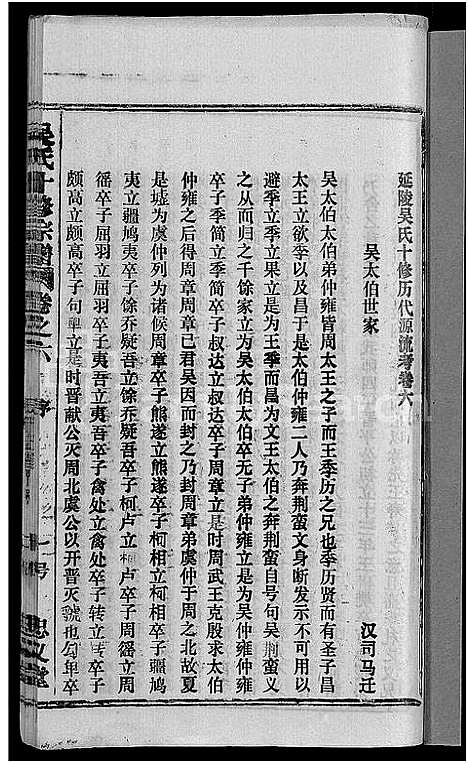 延陵吴氏十修历代源流考卷六
吴太伯世家
汉司马迁
吴太伯太伯弟仲雍皆周太王之子而王季历之兄也季历贤而有圣子昌
太王立欲季以及昌于是太伯仲雍二人乃奔荆蛮文身断发示不可用以
避季立季立果立是为王季而昌为文王太伯之奔荆蛮自号句吴荆蛮义
之从而归之千馀家立为吴太伯太伯卒无子弟仲雍立是为吴仲雍仲雍
卒子季简立季简卒子叔达立叔达卒子周章立是时周武王克殷求太伯
仲雍之后得周章周章已君吴因而封之乃封章弟虞仲于周之北故夏
是墟为虞仲列为诸候周章卒子熊遂立熊遂卒子柯相立柯相卒子疆鸠
夷立疆鸠夷卒子馀乔疑吾立馀乔疑吾卒子柯卢立柯卢卒子周徭立周
徭卒子屈羽立屈羽卒子夷吾立夷吾卒子禽处立禽处卒子转立转卒子
颇高立颇高卒子句卑立是时晋献公灭周北虞公以开晋灭虢也句卑卒
吴氏十修宗谱 卷之六
号
忠义堂